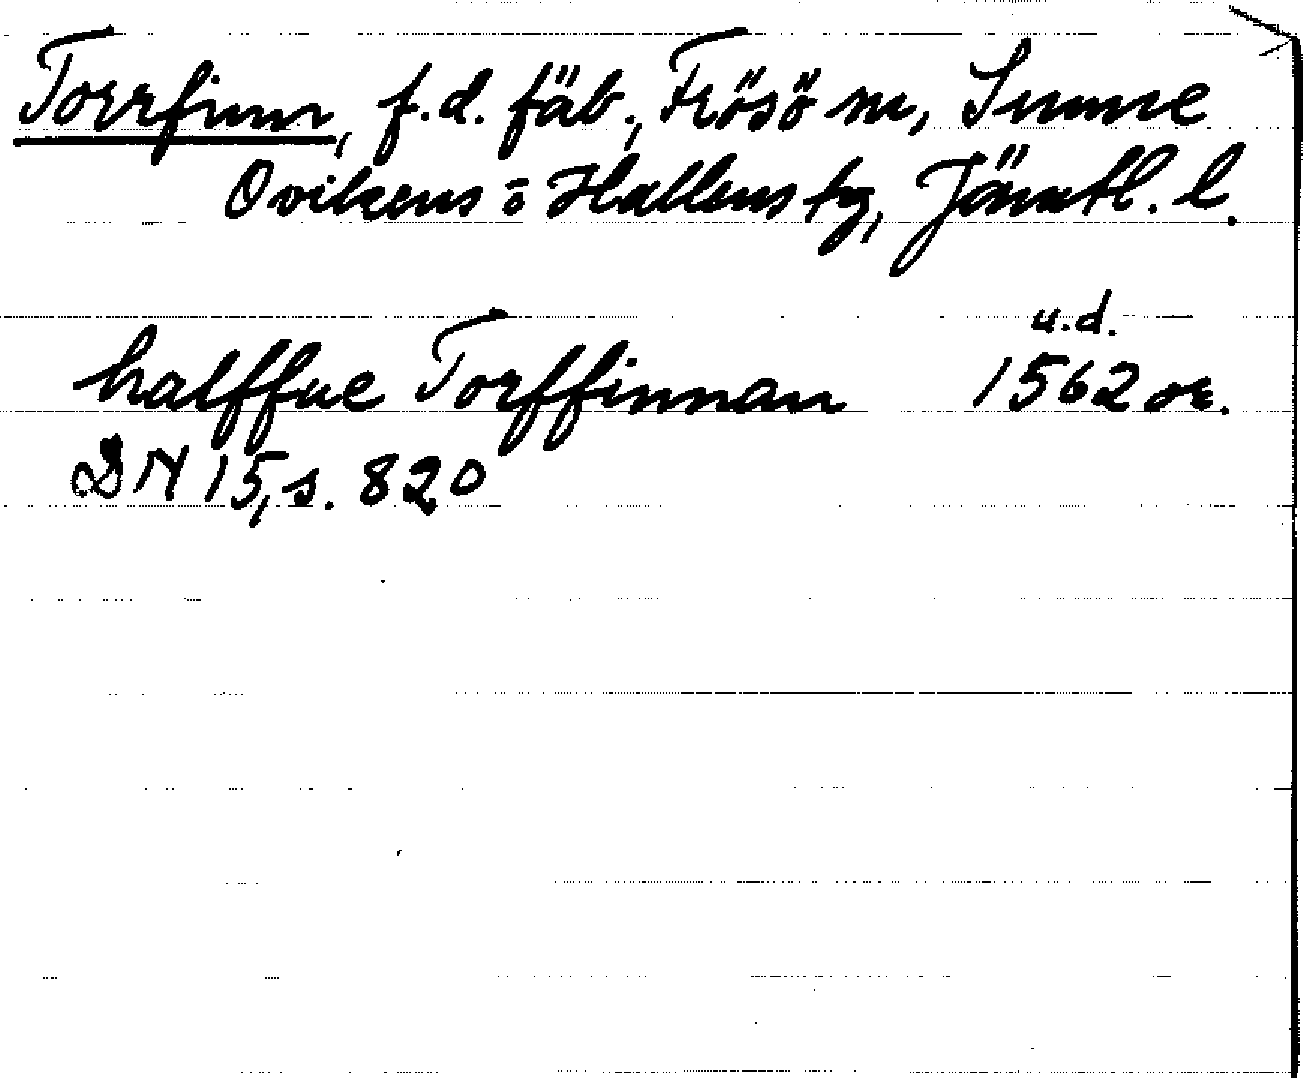 Torrfinn, f.d. fäb., Frösö sn, Sunne
Ovikens o Hallens tg, Jämtl. l.
u.d.
halffue Torffinnan 1562 or.
DN 15, s. 820